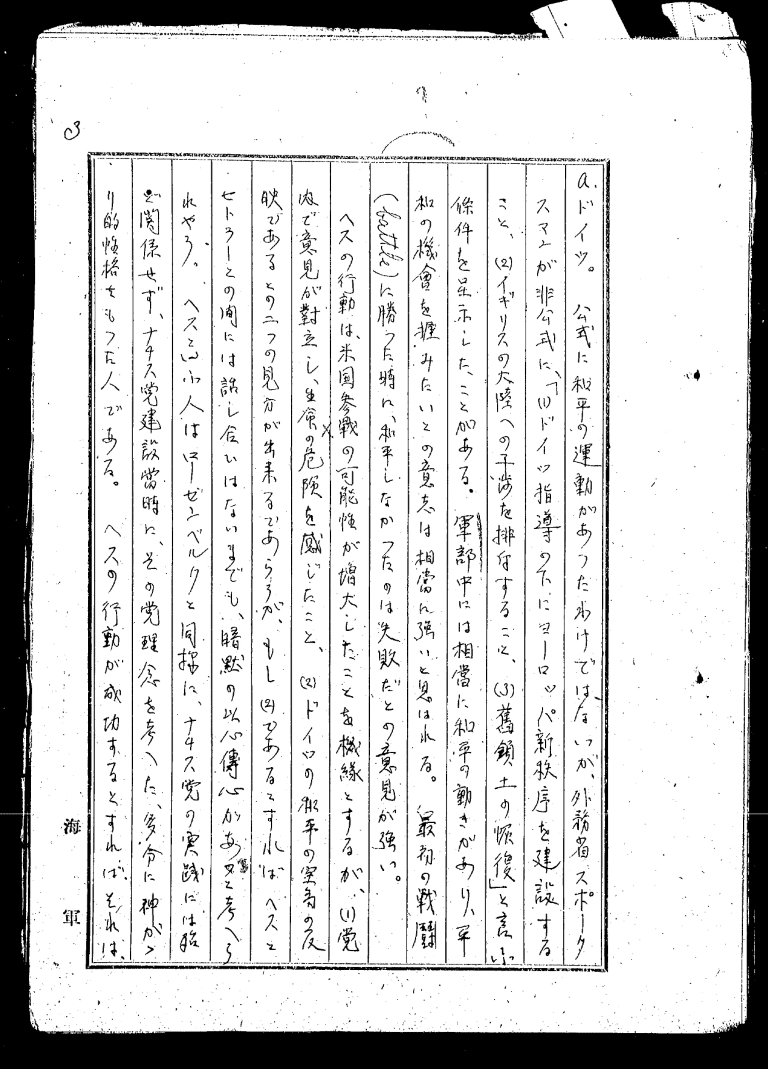 3
a. ドイツ。 公式に和平の運動があつたわけではないが、外務省スポーク
スマンが非公式に、「(1)ドイツ指導の下にヨーロッパ新秩序を建設する
こと、(2)イギリスの大陸への干渉を排除すること、(3)舊領土の恢復」と言ふ
條件を呈示したことがある。 軍部中には相當に和平の動きがあり、平
和の機會を握みたいとの意志は相當に強いと思はれる。 最初の戰鬪
(battle)に勝つた時に、和平しなかつたのは失敗だとの意見が強い。
ヘスの行動は、米国参戰の可能性が増大したことを機縁とするが、(1)党
内で意見が對立し、生命の危険を感じたこと、(2)ドイツの和平の空氣の反
映であるとの二つの見方が出来るであらうが、もし(2)であるとすれば ヘスと
ヒトラーとの間には話し合ひはないまでも、暗黙の以心傳心があつたと考へら
れやう。 ヘスといふ人はローゼンベルクと同様に、ナチス党の実践には殆
ど関係せず、ナチス党建設當時に、その党理念を考へた、多分に神がゝ
り的性格をもつた人である。 ヘスの行動が成功するとすれば、それは、
海軍